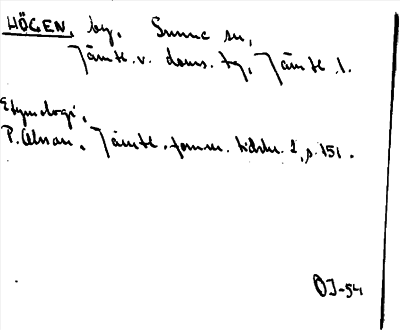 HÖGEN, by. Sunne sn,
Jämtl. v. doms. tg, Jämtl. l.
Etymologi,
P. Olsson, Jämtl. fornm. tidskr. 1, s. 151.
OJ-54